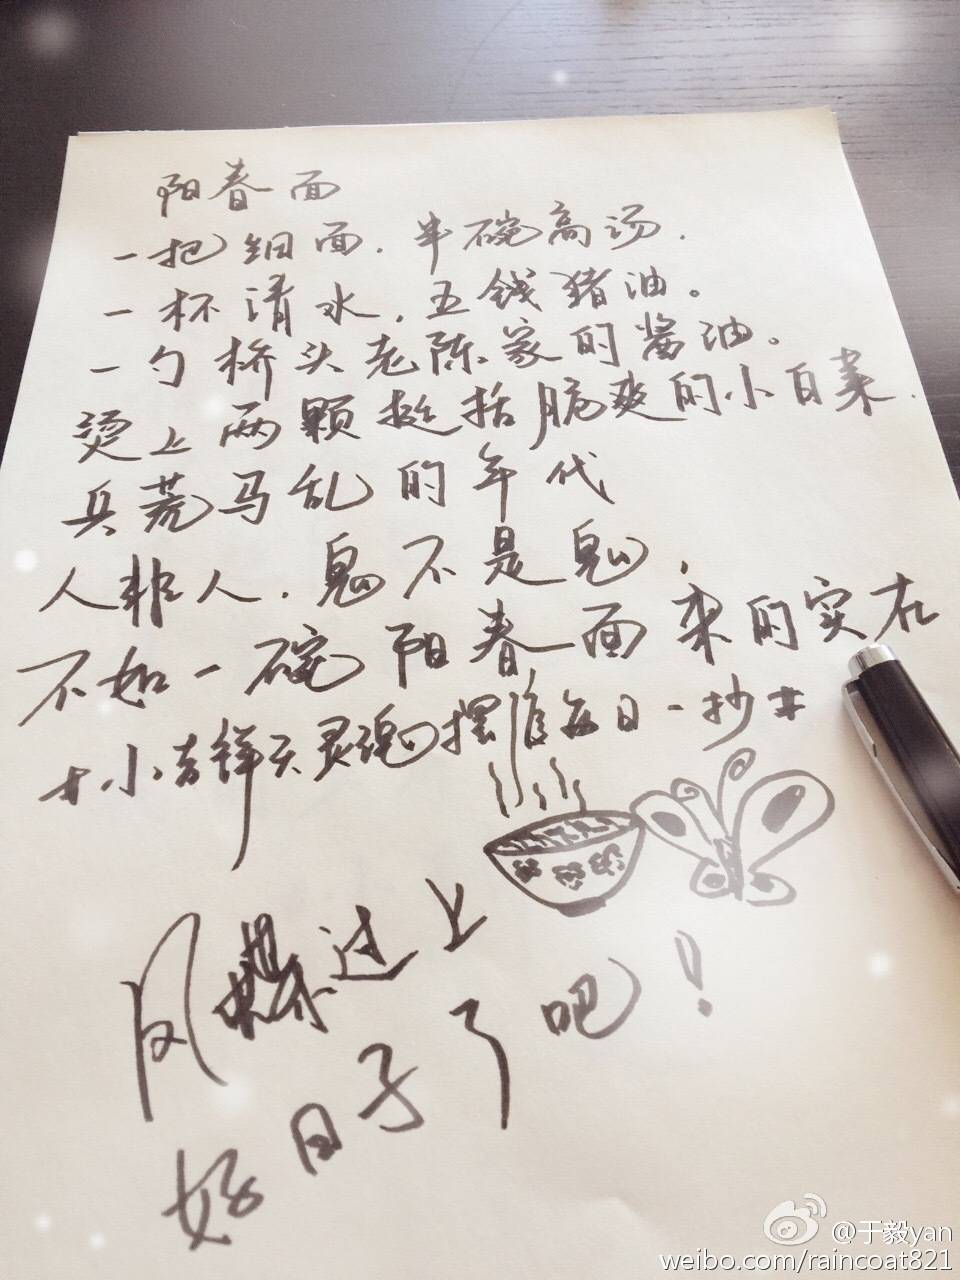 阳春面
一把细面,半碗高汤,
一杯清水,五钱猪油。
一勺桥头老陈家的酱油。
烫上两颗挺括脆爽的小白菜,
兵荒马乱的年代
人非人,鬼不是鬼,
不如一碗阳春面来的实在
#小吉祥天灵魂摆摊每日一抄#
凤蝶过上
好日子了吧!
@于毅yan
weibo.com/raincoat821